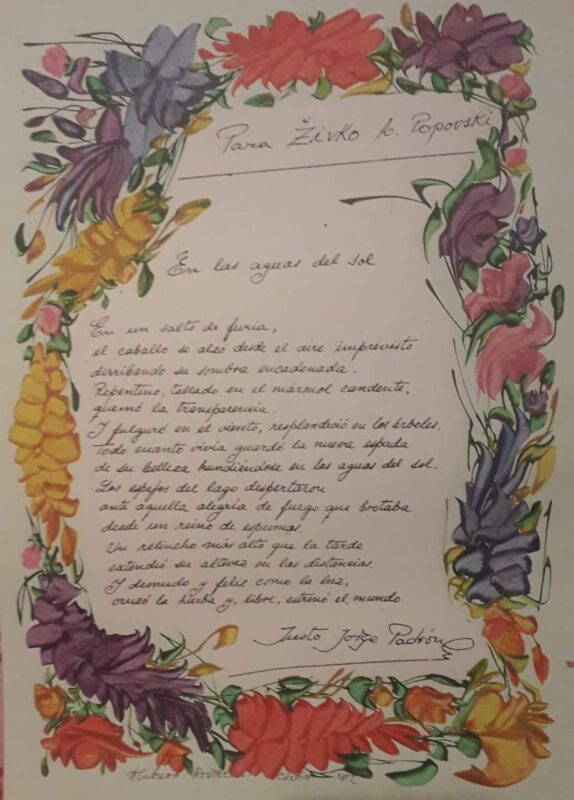 Para Živko A. Popovski
En las aguas del sol
En un salto de furia,
el caballo se alzó desde el aire imprevisto
derribando su sombra encadenada.
Repentino, tallado en el mármol candente,
quemó la transparencia.
Y fulguró en el viento, resplandeció en los árboles.
Todo cuanto vivía guardó la nueva espada
de su belleza hundiéndose en las aguas del sol.
Los espejos del lago despertaron
ante aquella alegría de fuego que brotaba
desde un reino de espumas.
Un relincho más alto que la tarde
extendió su altivez en las distancias.
Y desnudo y feliz como la luz,
cruzó la hierba y, libre, estrenó el mundo.
Justo Jorge Padrón